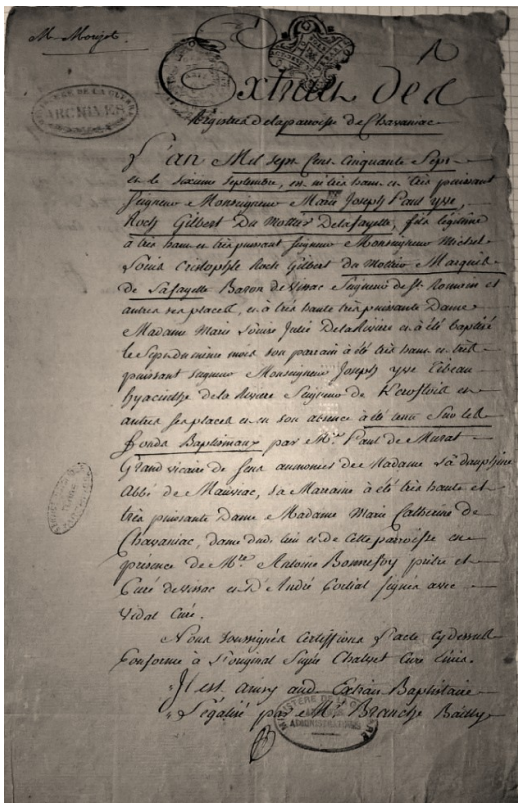 Extrait des
Registres de la paroisse de Chavaniac
L'an Mil sept Cent Cinquante Sept
et le sixieme septembre, est né très haut et très puissant
seigneur Monseigneur Marie Joseph Paul yve
Roch Gilbert Du Mottier Delafayette, fils légitime
à très haut et très puissant seigneur Monseigneur Michel
Louis Cristophle Roch Gilbert du Mottier Marquis
de Lafayette Baron de Vissac Seigneur de St. Romain et
autres ses places, et à très haute très puissante Dame
Madame Marie Louise Julie Delarivière et a été baptisé
le sept du même mois son parrain a été très haut et très
puissant seigneur Monseigneur Joseph yve
hyacinthe de la Riviere Seigneur de et
autres ses places et en son absence a été tenu sur les
fonds Baptismaux par Mre. Paul de Murat
Grand vicaire de Sens aumonier de Madame la dauphine
Abbé de Mauriac, sa Marraine a été très haute et
très puissante Dame Madame Marie Catherine de
Chavaniac, dame dud. lieu et de Cette parroisse en
présence de Mre. Antoine Bonnefoy prêtre et
Curé de vissac et d'André Cortial signés avec
Vidal Curé.
Nous soussignés Certiffions l'acte Cydessus
Conforme à l'original Signé Chalvet Curé
Il est ainsy aud. Extrait Baptistaire
Légalisé par Mr. Branche Bailly
ARCHIVES